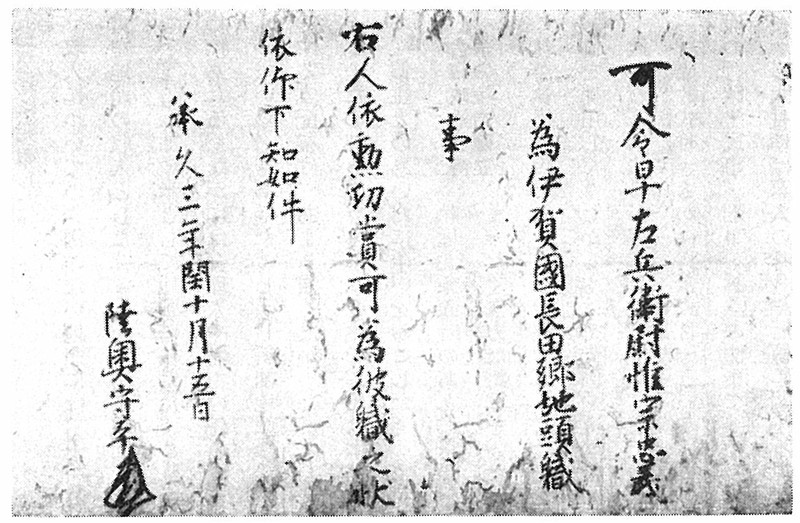 可令早左兵衛尉惟宗忠義
為伊賀國長田郷地頭職
事
右人依勲功賞可為彼職之状
依仰下知如件
承久三年閏十月十五日
陸奥守平